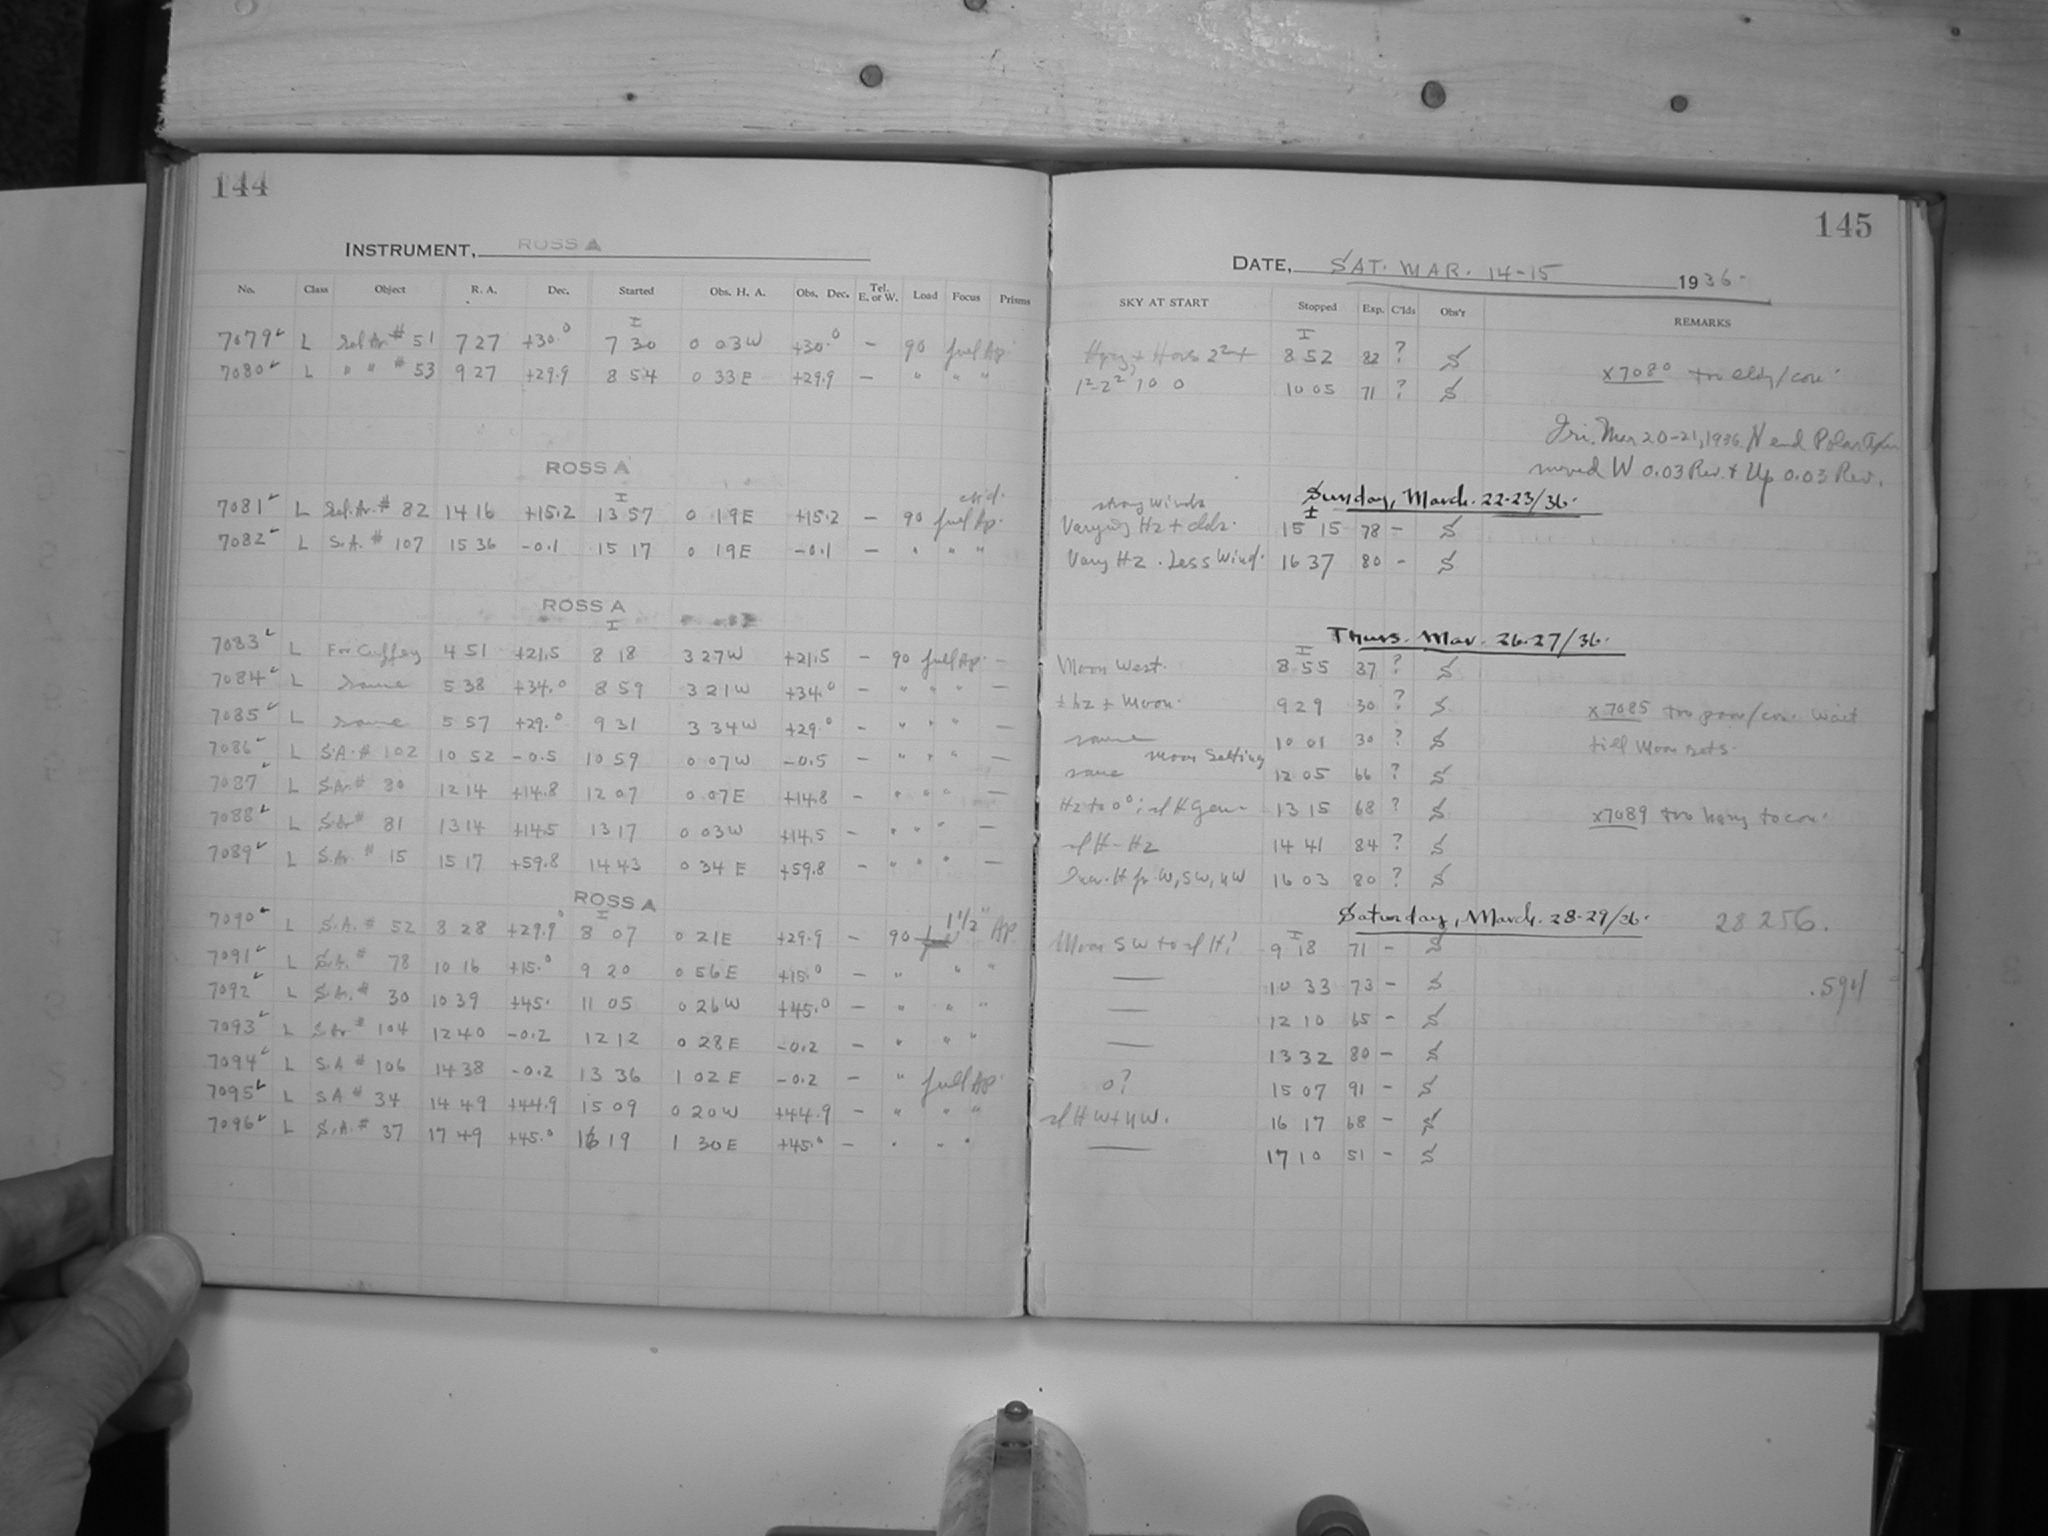 144
INSTRUMENT, ROSS A
No. Class Object R. A. Dec. Started Obs. H. A. Obs. Dec. Tel. E. or W. Load Focus Prisms
I
7079 L Sel. Ar. # 51 7 27 +30.0 7 30 0 03 W +30.0 – 90 full Ap.
7080 L " " # 53 9 27 +29.9 8 54 0 33 E +29.9 – " " "
ROSS A
I
7081 L Sel. Ar. # 82 14 16 +15.2 13 57 0 19 E +15.2 – 90 full Ap.
7082 L S.A. # 107 15 36 -0.1 15 17 0 19 E -0.1 – " " "
ROSS A
I
7083 L For Cuffey 4 51 +21.5 8 18 3 27 W +21.5 – 90 full Ap. –
7084 L same 5 38 +34.0 8 59 3 21 W +34.0 – " " " –
7085 L same 5 57 +29.0 9 31 3 34 W +29.0 – " " " –
7086 L S.A. # 102 10 52 -0.5 10 59 0 07 W -0.5 – " " " –
7087 L S.A. # 80 12 14 +14.8 12 07 0 07 E +14.8 – " " " –
7088 L S.A. # 81 13 14 +14.5 13 17 0 03 W +14.5 – " " " –
7089 L S.A. # 15 15 17 +59.8 14 43 0 34 E +59.8 – " " " –
ROSS A
I
7090 L S.A. # 52 8 28 +29.9 8 07 0 21 E +29.9 – 90 1 1/2" Ap.
7091 L S.A. # 78 10 16 +15.0 9 20 0 56 E +15.0 – " " "
7092 L S.A. # 30 10 39 +45. 11 05 0 26 W +45.0 – " " "
7093 L S.A. # 104 12 40 -0.2 12 12 0 28 E -0.2 – " " "
7094 L S.A. # 106 14 38 -0.2 13 36 1 02 E -0.2 – " full Ap.
7095 L S.A. # 34 14 49 +44.9 15 09 0 20 W +44.9 – " " "
7096 L S.A. # 37 17 49 +45.0 16 19 1 30 E +45.0 – " " "
145
DATE, SAT. MAR. 14-15 1936.
SKY AT START Stopped Exp. C'lds Obs'r REMARKS
I
8 52 82 ? S
10 05 71 ? S
x7080 too cldy/con.
Fri. Mar 20-21, 1936 N end Polar Axis
moved W 0.03 Rev. & Up 0.03 Rev.
Sunday, March. 22-23/36.
strong winds I
Varying Hz + clds. 15 15 78 – S
Vary Hz. Less Wind. 16 37 80 – S
Thurs. Mar. 26-27/36.
I
Moon West. 8 55 37 ? S
± hz + Moon. 9 29 30 ? S x7085 too poor/con. wait
same 10 01 30 ? S till Moon sets.
same Moon Setting 12 05 66 ? S
Hz to 0°; 13 15 68 ? S x7089 too hazy to con.
sl H - Hz 14 41 84 ? S
W, SW, NW 16 03 80 ? S
Saturday, March. 28-29/36. 28 256.
I
Moon SW to sl H! 9 18 71 – S
— 10 33 73 – S .594
— 12 10 65 – S
— 13 32 80 – S
0? 15 07 91 – S
sl H W + NW. 16 17 68 – S
— 17 10 51 – S